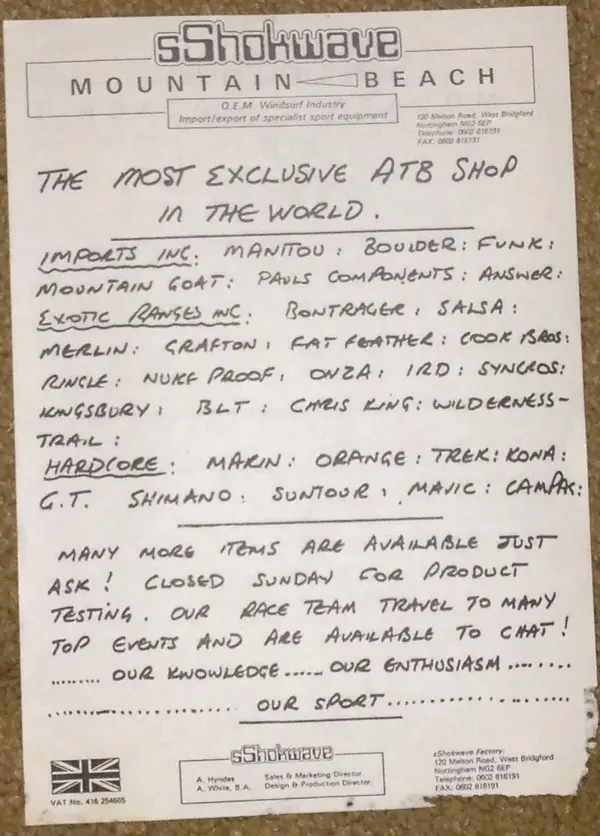 sShokwave
MOUNTAIN BEACH
O.E.M. Windsurf Industry
Import/export of specialist sport equipment
120 Melton Road, West Bridgford
Nottingham NG2 6EP
Telephone: 0602 816191
FAX: 0602 816191
THE MOST EXCLUSIVE ATB SHOP
IN THE WORLD.
IMPORTS INC: MANITOU: BOULDER: FUNK:
MOUNTAIN GOAT: PAULS COMPONENTS: ANSWER:
EXOTIC RANGES INC: BONTRAGER: SALSA:
MERLIN: GRAFTON: FAT FEATHER: COOK BROS:
RINGLE: NUKE PROOF: ONZA: IRD: SYNCROS:
KINGSBURY: BLT: CHRIS KING: WILDERNESS-
TRAIL:
HARDCORE: MARIN: ORANGE: TREK: KONA:
G.T. SHIMANO: SUNTOUR: MAVIC: CAMPAG:
MANY MORE ITEMS ARE AVAILABLE JUST
ASK! CLOSED SUNDAY FOR PRODUCT
TESTING. OUR RACE TEAM TRAVEL TO MANY
TOP EVENTS AND ARE AVAILABLE TO CHAT!
......... OUR KNOWLEDGE...... OUR ENTHUSIASM ........
..................... OUR SPORT .....................
sShokwave
A. Hyndes Sales & Marketing Director
A. White, B.A. Design & Production Director
sShokwave Factory:
120 Melton Road, West Bridgford
Nottingham NG2 6EP
Telephone: 0602 816191
FAX: 0602 816191
VAT No. 416 254665